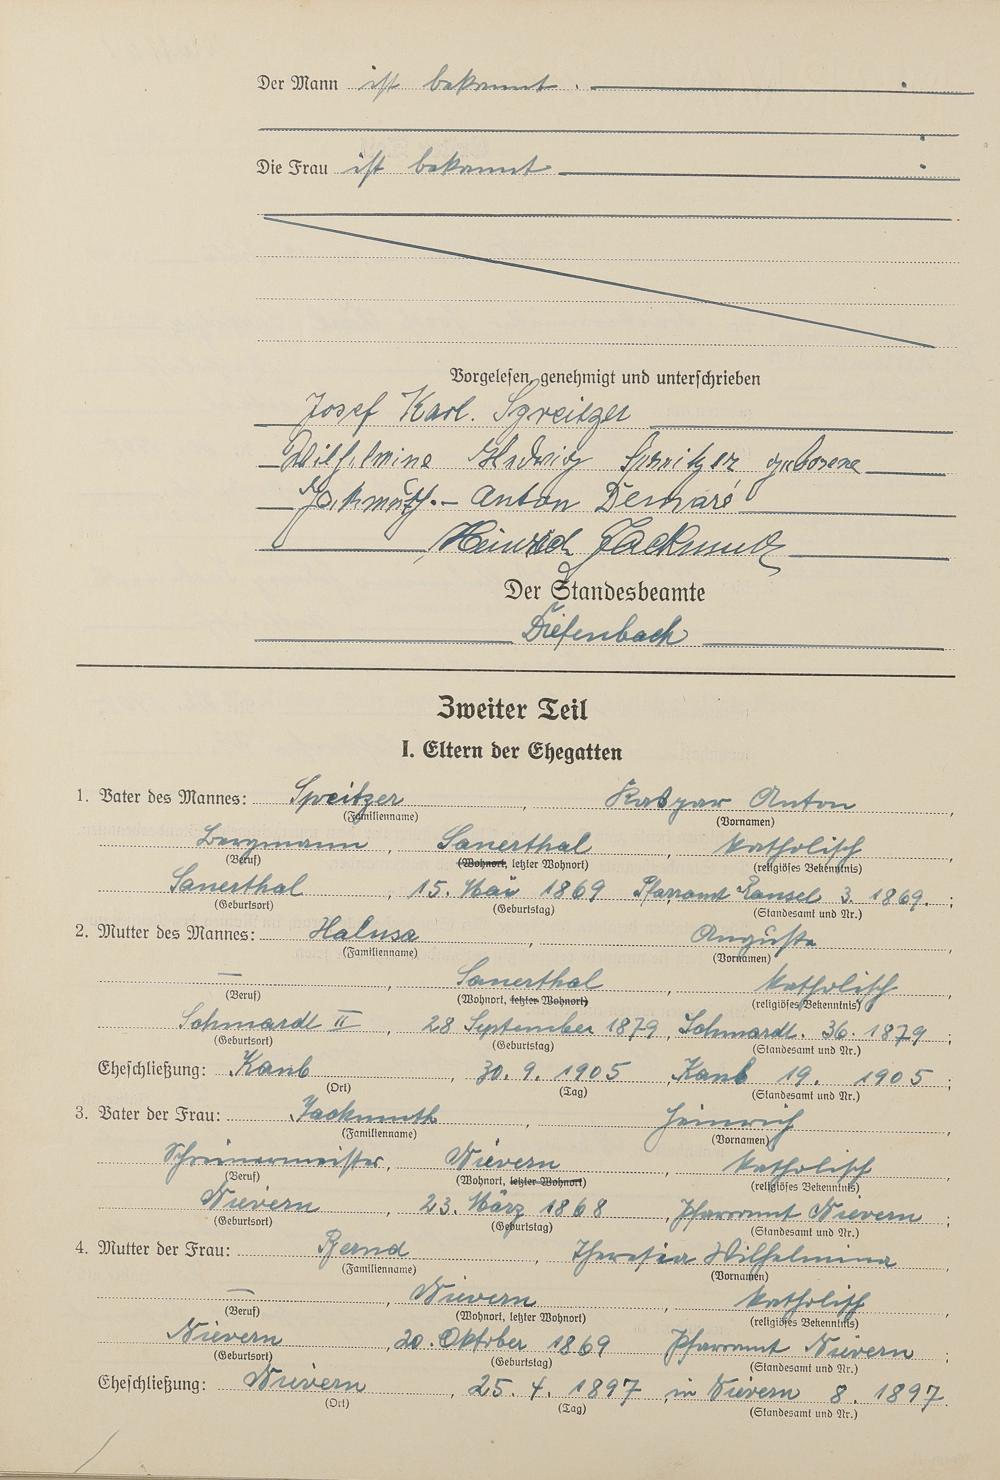 Der Mann ist bekannt.
Die Frau ist bekannt
Vorgelesen, genehmigt und unterschrieben
Josef Karl. Spreitzer
Wilhelmine Hedwig Spreitzer geborene
Jackmuth. - Anton Demaré
Heinrich Jackmuth
Der Standesbeamte
Diefenbach
Zweiter Teil
I. Eltern der Ehegatten
1. Vater des Mannes: Spreitzer, Kaspar Anton,
(Familienname) (Vornamen)
Bergmann, Sauerthal, katholisch
(Beruf) (Wohnort, letzter Wohnort) (religiöses Bekenntnis)
Sauerthal, 15. Mai 1869 Pfarramt Ransel 3. 1869.;
(Geburtsort) (Geburtstag) (Standesamt und Nr.)
2. Mutter des Mannes: Halusa, Auguste,
(Familienname) (Vornamen)
—, Sauerthal, katholisch
(Beruf) (Wohnort, letzter Wohnort) (religiöses Bekenntnis)
Schmardt II, 28 September 1879, Schmardt. 36. 1879;
(Geburtsort) (Geburtstag) (Standesamt und Nr.)
Eheschließung: Kaub, 30. 9. 1905, Kaub 19. 1905;
(Ort) (Tag) (Standesamt und Nr.)
3. Vater der Frau: Jackmuth, Heinrich,
(Familienname) (Vornamen)
Schreinermeister, Nievern, katholisch
(Beruf) (Wohnort, letzter Wohnort) (religiöses Bekenntnis)
Nievern, 23. März 1868, Pfarramt Nievern;
(Geburtsort) (Geburtstag) (Standesamt und Nr.)
4. Mutter der Frau: Bernd, Theresia Wilhelmina,
(Familienname) (Vornamen)
—, Nievern, katholisch
(Beruf) (Wohnort, letzter Wohnort) (religiöses Bekenntnis)
Nievern, 20. Oktober 1869 Pfarramt Nievern;
(Geburtsort) (Geburtstag) (Standesamt und Nr.)
Eheschließung: Nievern, 25. 4. 1897, in Nievern 8. 1897.
(Ort) (Tag) (Standesamt und Nr.)